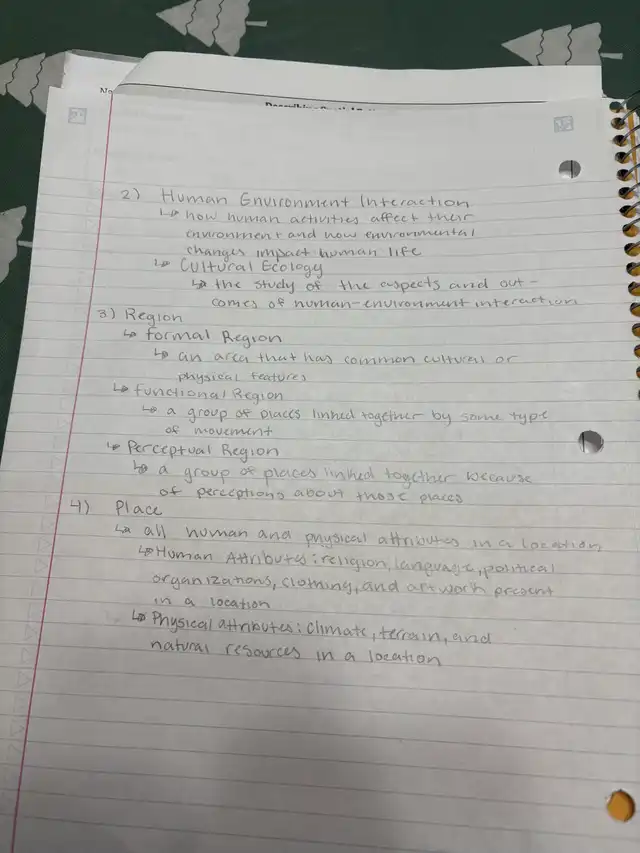 No
2) Human Environment Interaction
↳ how human activities affect their
environment and how environmental
changes impact human life
↳ Cultural Ecology
↳ the study of the aspects and out-
comes of human-environment interaction
3) Region
↳ formal Region
↳ an area that has common cultural or
physical features
↳ functional Region
↳ a group of places linked together by some type
of movement
↳ Perceptual Region
↳ a group of places linked together because
of perceptions about those places
4) Place
↳ all human and physical attributes in a location
↳ Human Attributes: religion, language, political
organizations, clothing, and artwork present
in a location
↳ Physical attributes: climate, terrain, and
natural resources in a location